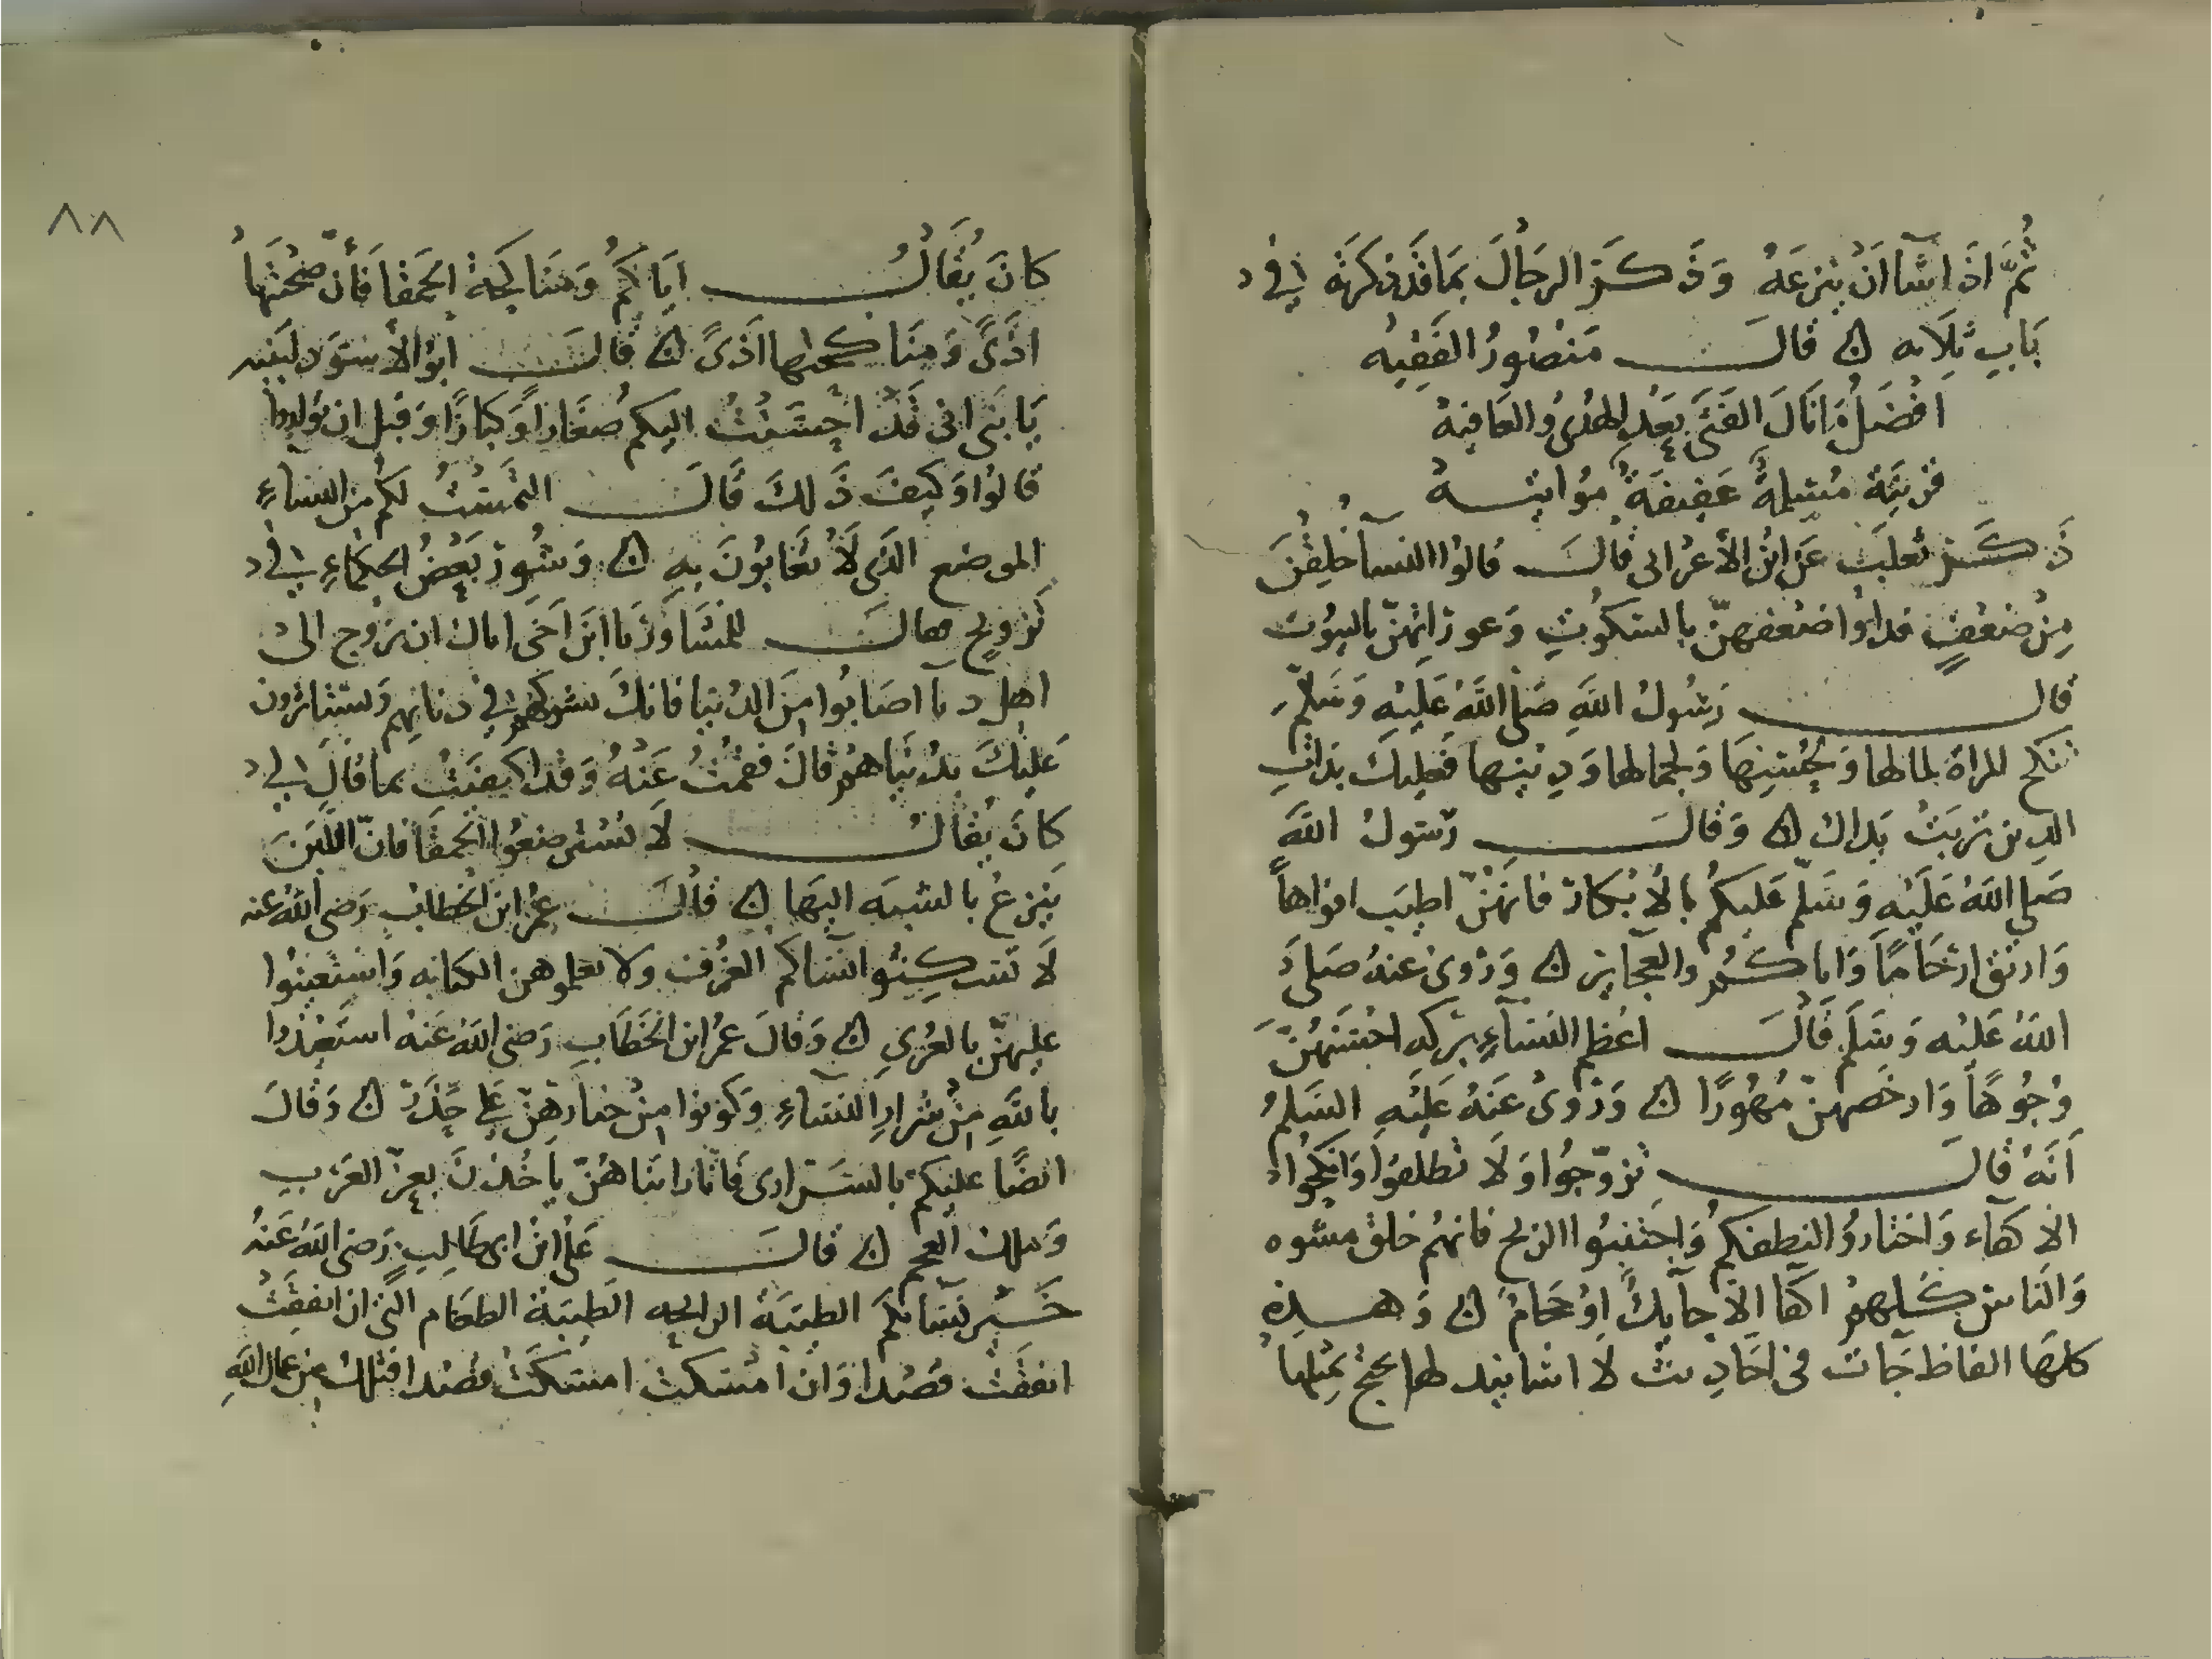 ثُمَّ اذَا شَا انْ يَنزعَهُ وَذَكَرَ الرجَالَ بمَا قَد ذكرته في
بَابِ ثلاثه ۞ قال مَنْصُورُ الفَقِيه
افْضَلُ مَا نَالَ الفَتَى بَعْدِ الهُدىُ والعَافيهْ
قرينَة مُسْلِمةٌ عَفِيفَةٌ مُواتيهْ
ذَكَرَ ثعلبَ عَن ابن الأعرابى قال قالوا النسآ خُلِقْنَ
مِنْ ضَعْفٍ فداوُا ضعْفهنّ بالسكوُتِ وَعوراتهنّ بالبيوُت
قال رَسُولُ اللهِ صَلى اللهُ عَلَيْهِ وَسَلّم
تنكح المراة لمالها وَلحُسْنِهَا وَلجمالها وَدِينها فعليك بذاتِ
الدين تربَتْ يَداك ۞ وَقال رَسُولُ اللهِ
صَلى اللهُ عَلَيْهِ وَسَلّم عَليكُم بالأبْكار فانهُنّ اطيَب افواهاً
وَانتق ارْحَامًا وَاياكُم والعجايز ۞ وَرُوىَ عنهُ صَلى
اللهُ عَلَيْه وَسَلَم قال اعُظم النسَآءِ بَركه احْسَنهُنّ
وُجُوهًا وَارخصهنّ مُهُورًا ۞ وَرُوىَ عَنهُ عَلَيْهِ السَلمُ
اَنَهُ قال تزوّجُوا وَلا تطلقوا وَانكحُوا
الاكفآء وَاختارُوا لنطفكم وَاجتنبُوا الزنج فانهُم خلق مشوه
وَالناس كلهم اكفا الا حآيك او حجام ۞ وَهذه
كلهَا الفاظ جَآت فى احَاديث لا اسانيد لها يحتج بمثلها
كانَ يُقالُ اياكُم وَمنَاكحَة الحَمقا فَأنّ صُحْبَتهَا
اذَىً وَمنَاكحتها اذَىً ۞ قال ابو الأسْوَد لبَنيه
يَا بَنى انى قَدْ احْسَنْتُ اليكم صُغَاراً وَكبارًا وَقَبل ان تولدوا
قالوا وَكيفَ ذَلكَ قالَ التمَسْتُ لكمُ من النساءِ
الموضع الذَى لاَ تعَابُونَ بهِ ۞ وَشُورَ بَعْضُ الحكمَاءِ في
تزويج فقال للمُشَاور يَا ابنَ اخَى اياك ان تزوج الى
اهل دنيا اصَابُوا مِنَ الدُنيا فانك تشركهم في دنياهم وَيستاثرون
عَليْكَ بدُنياهم قال فقمْتُ عَنهُ وَقد اكتفيْتُ بما قالَ لي
كانَ يُقالُ لَا تسْترضعُوا الحمقَا فانّ اللبَنَ
يَنزعُ بالشبَه اليهَا ۞ قال عُمر ابن الخطاب رَضى اللهُ عنه
لَا تسْكِنُوا نسآكم الغرف ولا تعلموهن الكتابه وَاستعينُوا
عليهنّ بالعُرىِ ۞ وَقالَ عُمر ابن الخَطابِ رَضى اللهُ عَنهُ استَعيْذُوا
باللهِ مِنْ شرارِ النسَاءِ وَكونوا مِنْ خيارهِنّ عَلى حَذَر ۞ وَقالَ
ايضًا عليكم بالسَرارى فَانا رَايناهُنّ ياخُذنَ بعِزّ العَرَب
وَملك العجم ۞ قال عَلىُ ابن ابى طَالِب رَضى اللهُ عَنهُ
خَير نسَائكم الطيبَة الرايحه الطيبَة الطعَام التى ان انفقَتْ
انفقَتْ قصْدا وَان امْسَكتْ امسَكَتْ قصْدا فتلك من عمال اللهِ
٨٨